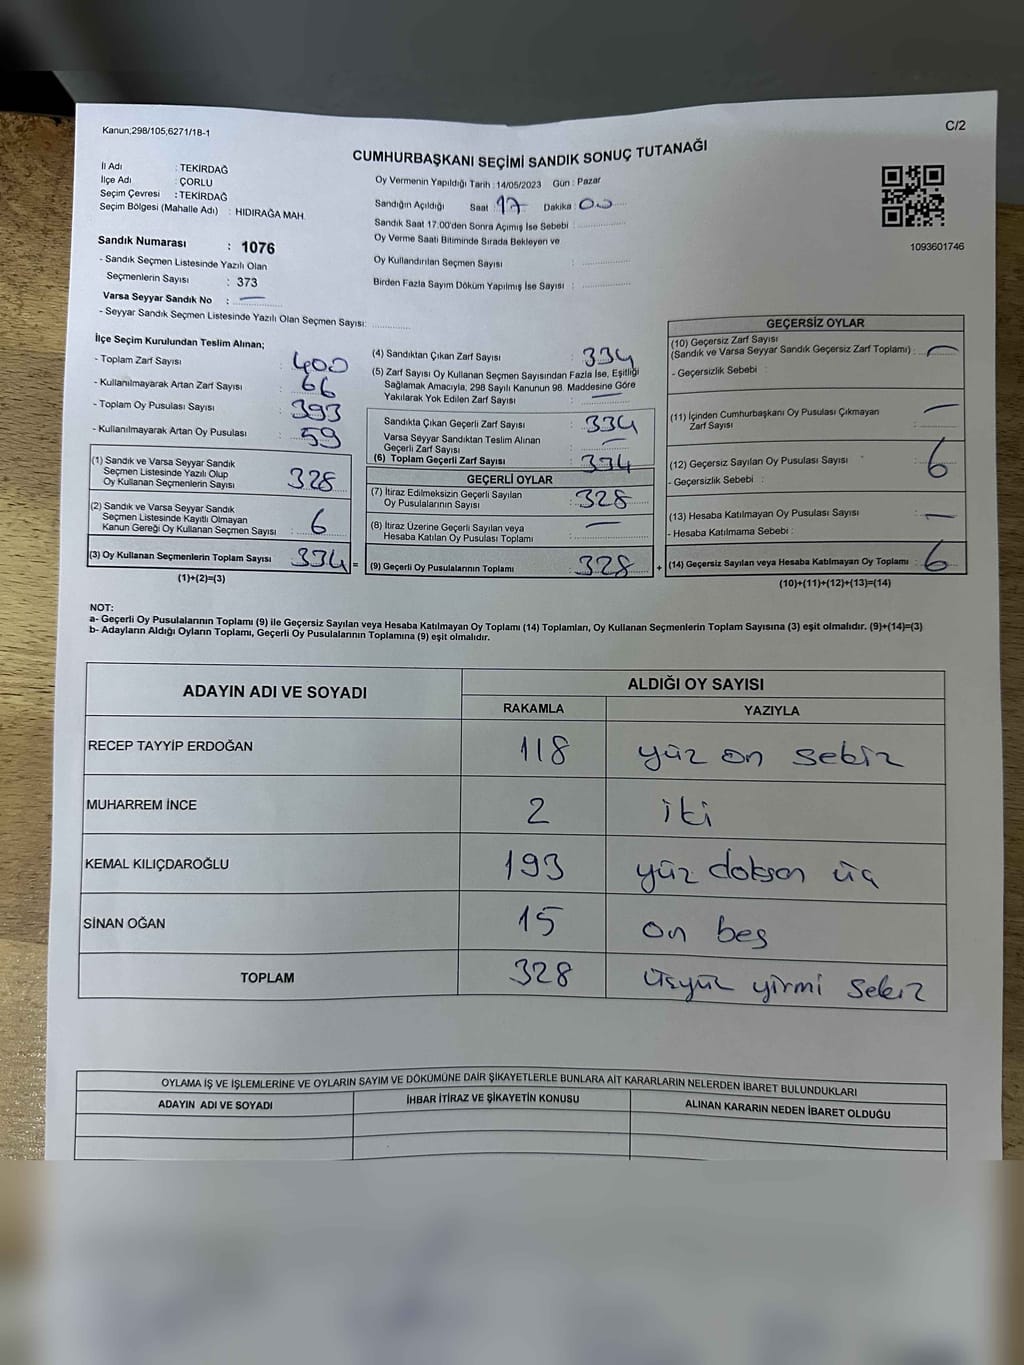 Kanun,298/105,6271/18-1
C/2
CUMHURBAŞKANI SEÇİMİ SANDIK SONUÇ TUTANAĞI
İl Adı : TEKİRDAĞ
İlçe Adı : ÇORLU
Seçim Çevresi : TEKİRDAĞ
Seçim Bölgesi (Mahalle Adı) : HIDIRAĞA MAH.
Sandık Numarası : 1076
- Sandık Seçmen Listesinde Yazılı Olan
Seçmenlerin Sayısı : 373
Varsa Seyyar Sandık No : —
- Seyyar Sandık Seçmen Listesinde Yazılı Olan Seçmen Sayısı:
Oy Vermenin Yapıldığı Tarih : 14/05/2023 Gün : Pazar
Sandığın Açıldığı Saat : 17 Dakika : 00
Sandık Saat 17.00'den Sonra Açımış İse Sebebi :
Oy Verme Saati Bitiminde Sırada Bekleyen ve
Oy Kullandırılan Seçmen Sayısı :
Birden Fazla Sayım Döküm Yapılmış İse Sayısı :
1093601746
İlçe Seçim Kurulundan Teslim Alınan;
- Toplam Zarf Sayısı : 400
- Kullanılmayarak Artan Zarf Sayısı : 66
- Toplam Oy Pusulası Sayısı : 393
- Kullanılmayarak Artan Oy Pusulası : 59
(1) Sandık ve Varsa Seyyar Sandık
Seçmen Listesinde Yazılı Olup
Oy Kullanan Seçmenlerin Sayısı : 328
(2) Sandık ve Varsa Seyyar Sandık
Seçmen Listesinde Kayıtlı Olmayan
Kanun Gereği Oy Kullanan Seçmen Sayısı : 6
(3) Oy Kullanan Seçmenlerin Toplam Sayısı : 334 =
(1)+(2)=(3)
(4) Sandıktan Çıkan Zarf Sayısı : 334
(5) Zarf Sayısı Oy Kullanan Seçmen Sayısından Fazla İse, Eşitliği
Sağlamak Amacıyla, 298 Sayılı Kanunun 98. Maddesine Göre
Yakılarak Yok Edilen Zarf Sayısı : —
Sandıkta Çıkan Geçerli Zarf Sayısı : 334
Varsa Seyyar Sandıktan Teslim Alınan
Geçerli Zarf Sayısı : —
(6) Toplam Geçerli Zarf Sayısı : 334
GEÇERLİ OYLAR
(7) İtiraz Edilmeksizin Geçerli Sayılan
Oy Pusulalarının Sayısı : 328
(8) İtiraz Üzerine Geçerli Sayılan veya
Hesaba Katılan Oy Pusulası Toplamı : —
(9) Geçerli Oy Pusulalarının Toplamı : 328 +
GEÇERSİZ OYLAR
(10) Geçersiz Zarf Sayısı
(Sandık ve Varsa Seyyar Sandık Geçersiz Zarf Toplamı) : —
- Geçersizlik Sebebi :
(11) İçinden Cumhurbaşkanı Oy Pusulası Çıkmayan
Zarf Sayısı : —
(12) Geçersiz Sayılan Oy Pusulası Sayısı : 6
- Geçersizlik Sebebi :
(13) Hesaba Katılmayan Oy Pusulası Sayısı : —
- Hesaba Katılmama Sebebi :
(14) Geçersiz Sayılan veya Hesaba Katılmayan Oy Toplamı : 6
(10)+(11)+(12)+(13)=(14)
NOT:
a- Geçerli Oy Pusulalarının Toplamı (9) ile Geçersiz Sayılan veya Hesaba Katılmayan Oy Toplamı (14) Toplamları, Oy Kullanan Seçmenlerin Toplam Sayısına (3) eşit olmalıdır. (9)+(14)=(3)
b- Adayların Aldığı Oyların Toplamı, Geçerli Oy Pusulalarının Toplamına (9) eşit olmalıdır.
ADAYIN ADI VE SOYADI ALDIĞI OY SAYISI
RAKAMLA YAZIYLA
RECEP TAYYİP ERDOĞAN 118 yüz on sekiz
MUHARREM İNCE 2 iki
KEMAL KILIÇDAROĞLU 193 yüz doksan üç
SİNAN OĞAN 15 on beş
TOPLAM 328 üçyüz yirmi sekiz
OYLAMA İŞ VE İŞLEMLERİNE VE OYLARIN SAYIM VE DÖKÜMÜNE DAİR ŞİKAYETLERLE BUNLARA AİT KARARLARIN NELERDEN İBARET BULUNDUKLARI
ADAYIN ADI VE SOYADI İHBAR İTİRAZ VE ŞİKAYETİN KONUSU ALINAN KARARIN NEDEN İBARET OLDUĞU